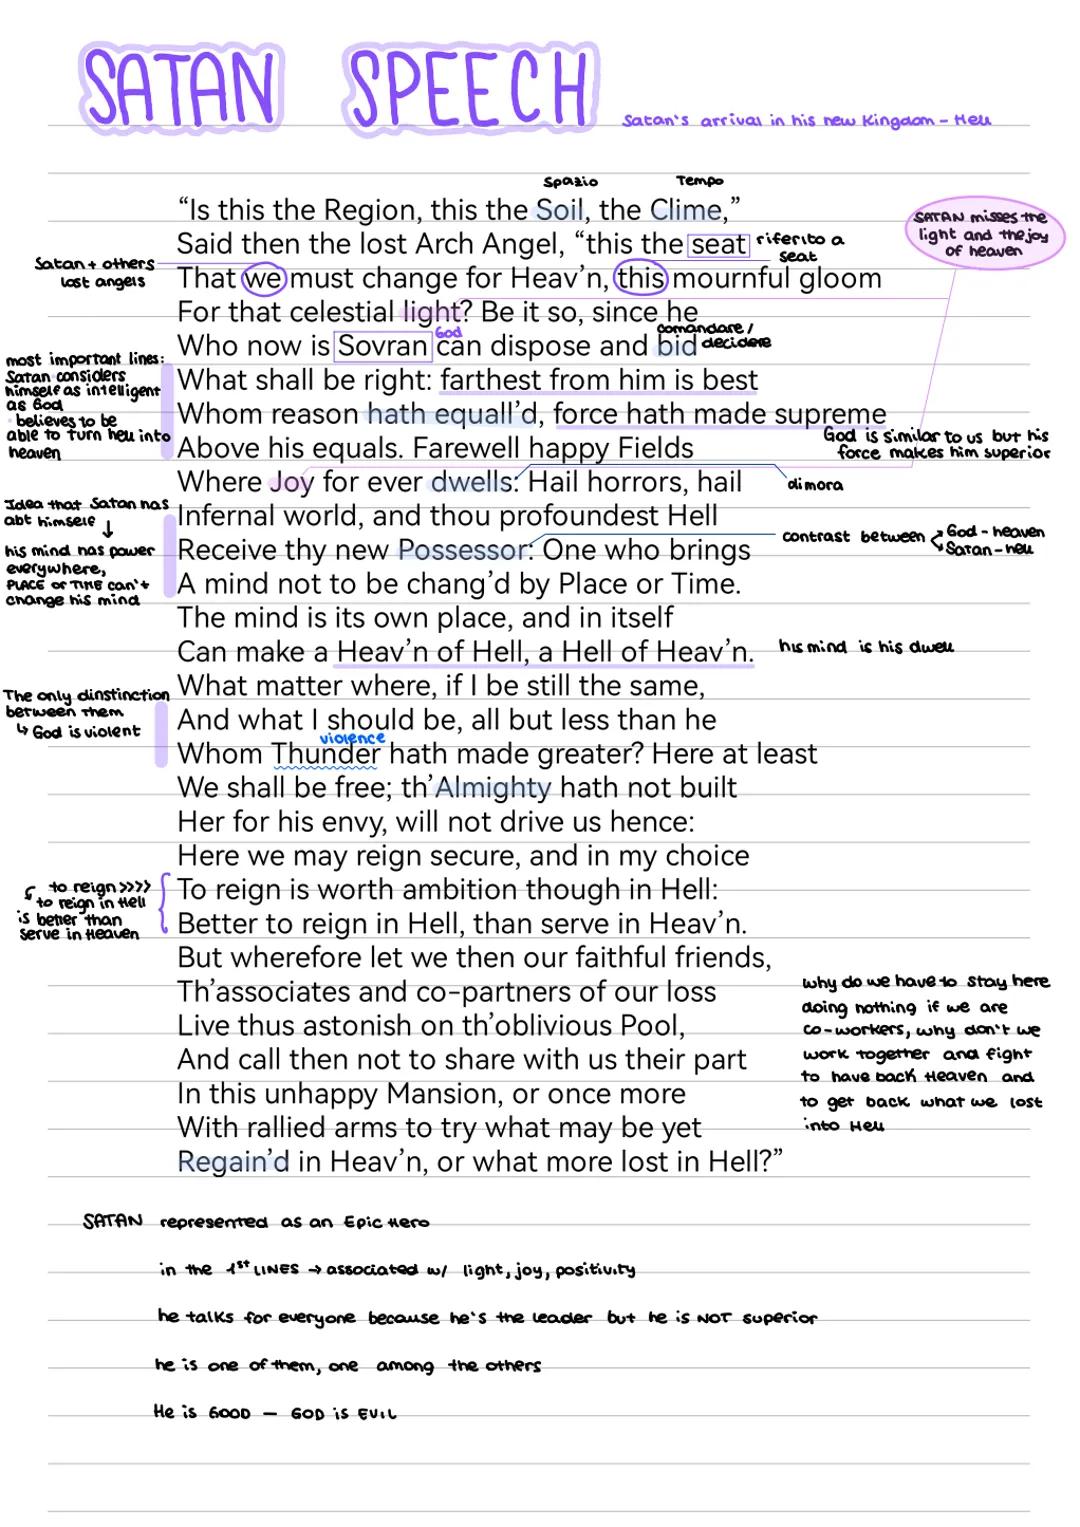 SATAN SPEECH
Satan's arrival in his new Kingdom - Hell
Spazio Tempo
“Is this the Region, this the Soil, the Clime,”
Said then the lost Arch Angel, “this the seat
riferito a
seat
That we must change for Heav’n, this mournful gloom
For that celestial light? Be it so, since he
Who now is Sovran can dispose and bid
God
comandare/
decidere
What shall be right: farthest from him is best
Whom reason hath equall’d, force hath made supreme
Above his equals. Farewell happy Fields
Where Joy for ever dwells: Hail horrors, hail
dimora
Infernal world, and thou profoundest Hell
Receive thy new Possessor: One who brings
A mind not to be chang’d by Place or Time.
The mind is its own place, and in itself
Can make a Heav’n of Hell, a Hell of Heav’n.
his mind is his dwell
What matter where, if I be still the same,
And what I should be, all but less than he
violence
Whom Thunder hath made greater? Here at least
We shall be free; th’Almighty hath not built
Her for his envy, will not drive us hence:
Here we may reign secure, and in my choice
To reign is worth ambition though in Hell:
Better to reign in Hell, than serve in Heav’n.
But wherefore let we then our faithful friends,
Th’associates and co-partners of our loss
Live thus astonish on th’oblivious Pool,
And call then not to share with us their part
In this unhappy Mansion, or once more
With rallied arms to try what may be yet
Regain’d in Heav’n, or what more lost in Hell?”
SATAN misses the
light and the joy
of heaven
Satan + others
lost angels
most important lines:
Satan considers
himself as intelligent
as God
· believes to be
able to turn hell into
heaven
God is similar to us but his
force makes him superior
Idea that Satan has
abt himself ↓
his mind has power
everywhere,
PLACE or TIME can't
change his mind
contrast between
God - heaven
Satan - hell
The only dinstinction
between them
↳ God is violent
to reign >>>>
to reign in Hell
is better than
serve in Heaven
why do we have to stay here
doing nothing if we are
co-workers, why don't we
work together and fight
to have back Heaven and
to get back what we lost
into Hell
SATAN represented as an Epic Hero
in the 1st LINES → associated w/ light, joy, positivity
he talks for everyone because he's the leader but he is NOT superior
he is one of them, one among the others
He is GOOD — GOD is EVIL